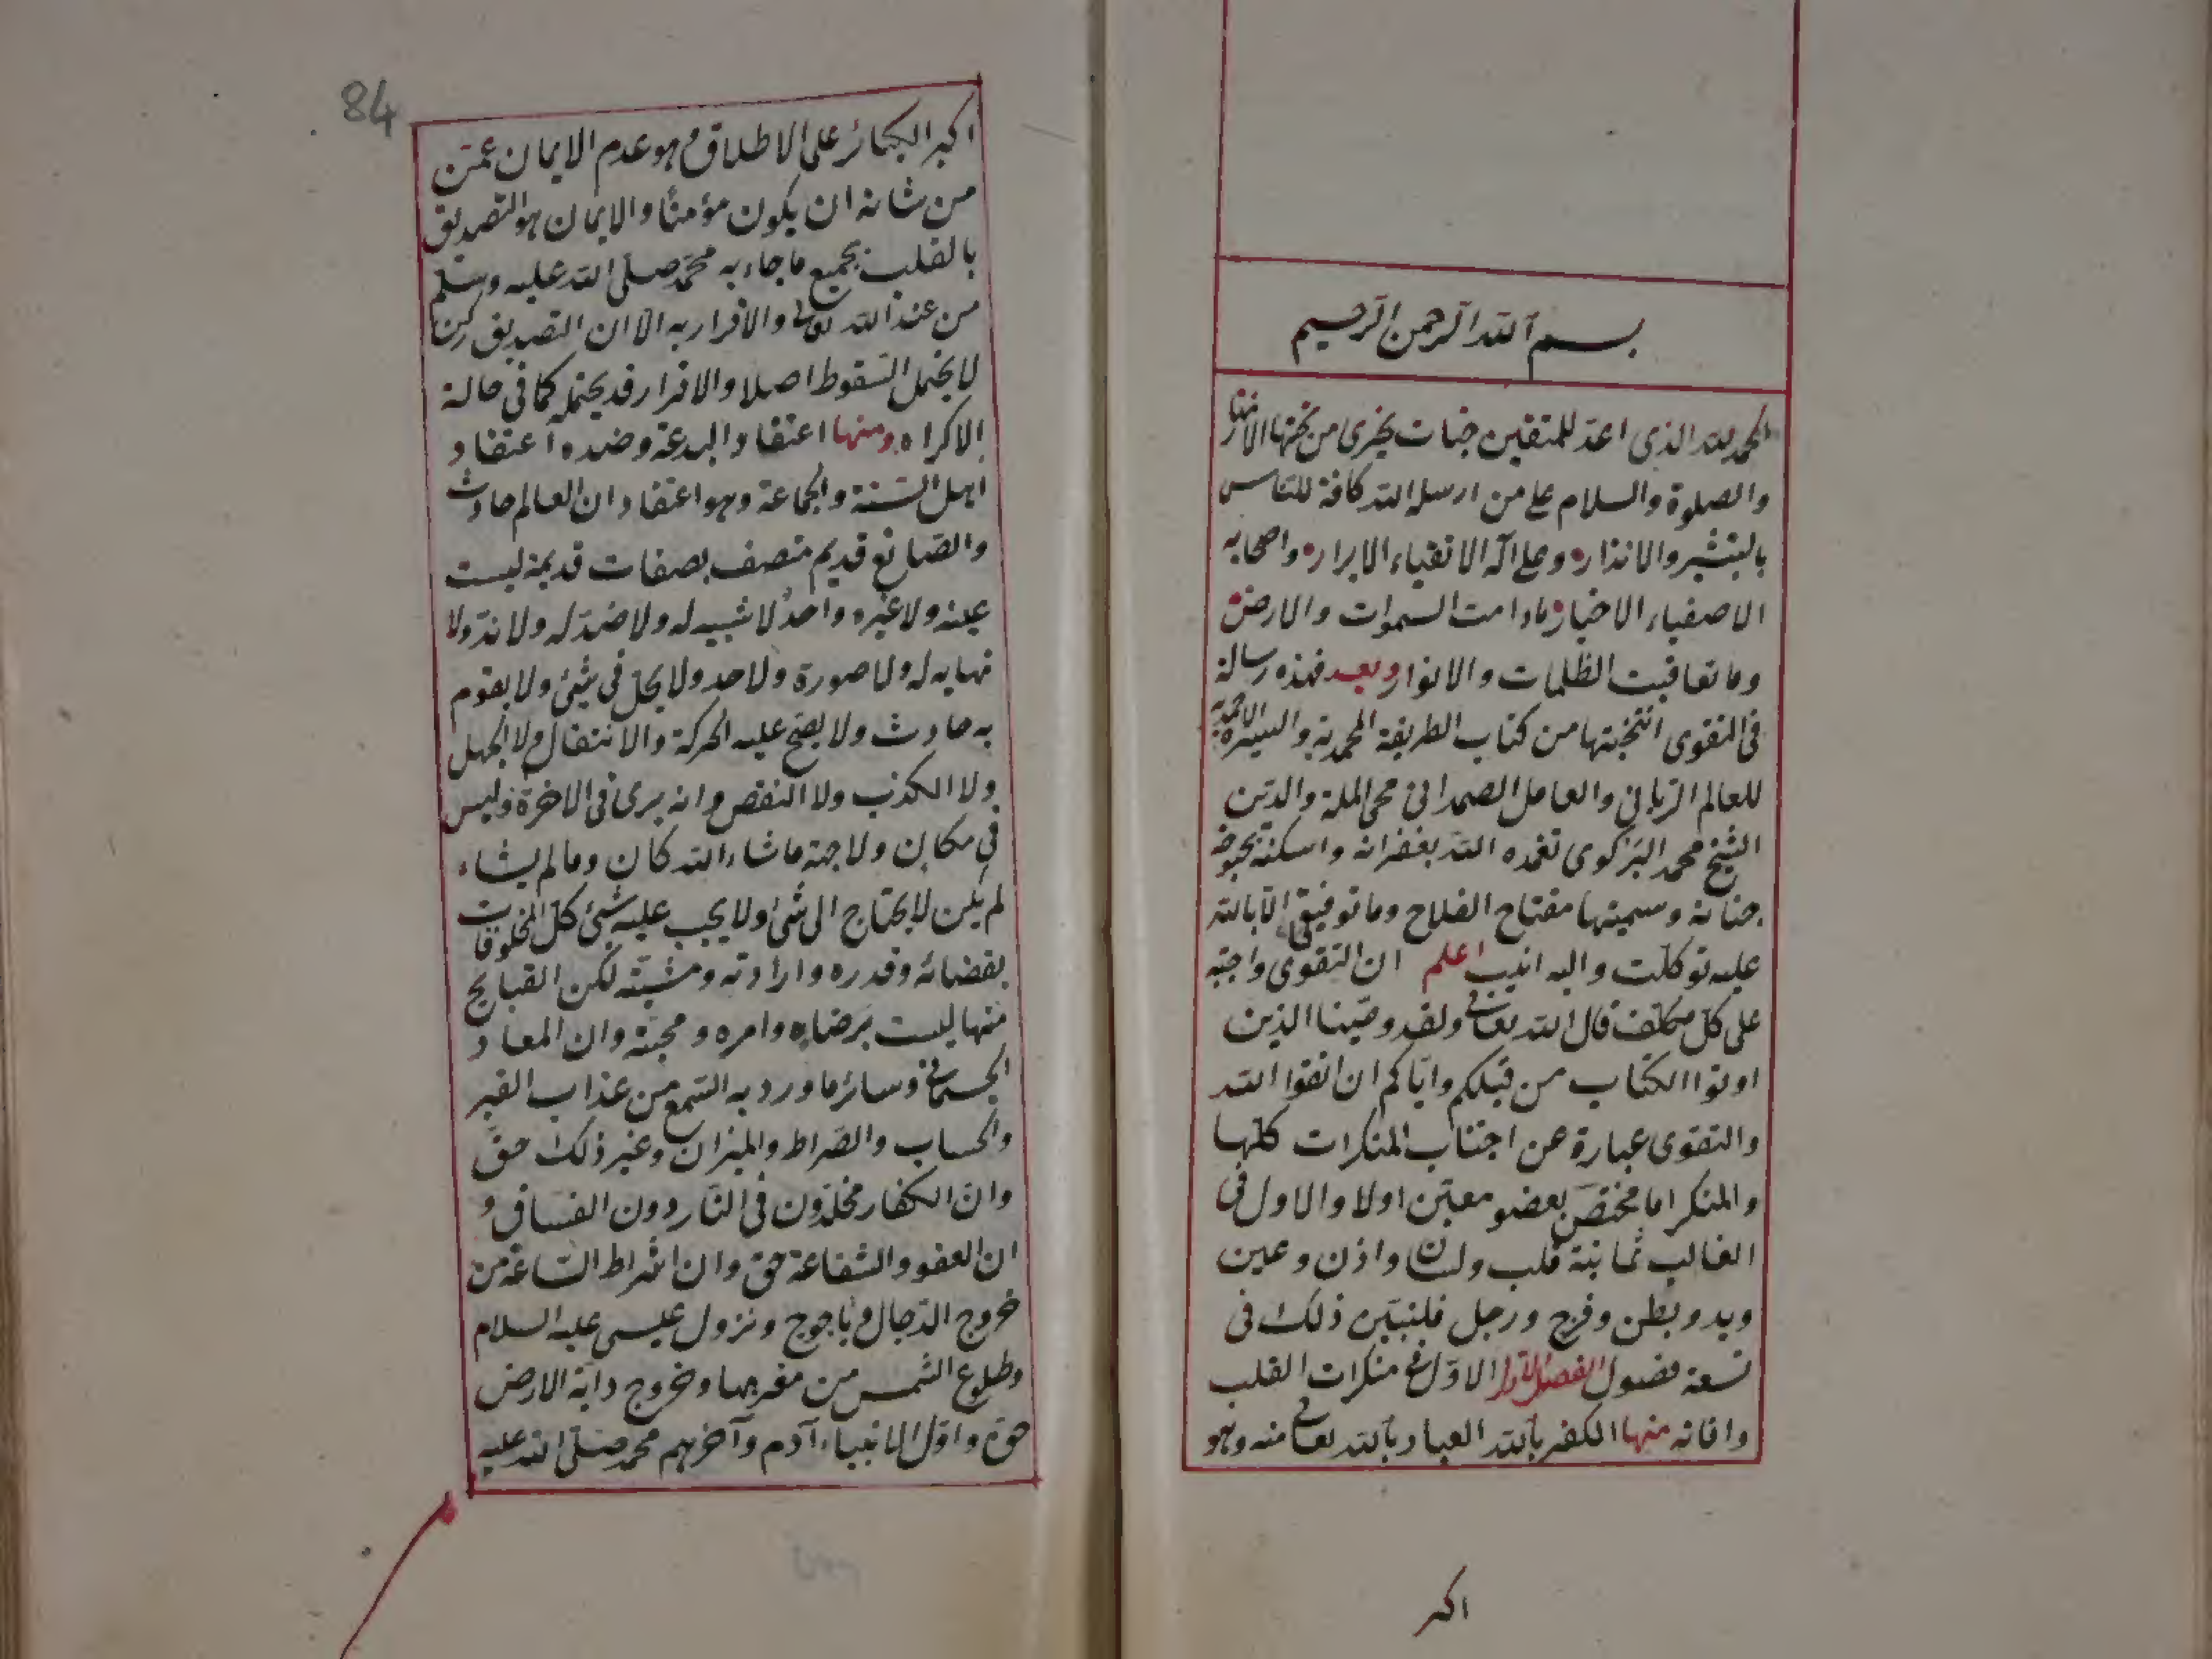 بسم الله الرحمن الرحيم
الحمد لله الذى اعد للمتقين جنات تجرى من تحتها الانهار
والصلوة والسلام على من ارسله الله كافة للناس
بالتبشير والانذار وعلى آله الاتقياء الابرار واصحابه
الاصفياء الاخيار مادامت السموات والارض
وما تعاقبت الظلمات والانوار وبعد فهذه رسالة
فى التقوى انتخبتها من كتاب الطريقة المحمدية والسيرة الاحمدية
للعالم الربانى والعامل الصمدانى محى الملة والدين
الشيخ محمد البركوى تغمده الله بغفرانه واسكنه بحبوحة
جنانه وسميتها مفتاح الفلاح وما توفيقى الا بالله
عليه توكلت واليه انيب اعلم ان التقوى واجبة
على كل مكلف قال الله تعالى ولقد وصّينا الذين
اوتوا الكتاب من قبلكم واياكم ان اتقوا الله
والتقوى عبارة عن اجتناب المنكرات كلها
والمنكر اما مختص بعضو معين اولا والاول فى
الغالب ثمانية قلب ولسان واذن وعين
ويد وبطن وفرج ورجل فلنبين ذلك فى
تسعة فصول الفصل الاول الاول فى منكرات القلب
وافاته منها الكفر بالله العياذ بالله تعالى منه وهو
اكبر
84
اكبر الكبائر على الاطلاق وهو عدم الايمان عمّن
من شانه ان يكون مؤمنًا والايمان هو التصديق
بالقلب بجميع ما جاء به محمّد صلى الله عليه وسلم
من عند الله تعالى والاقرار به الا ان التصديق ركن
لا يحتمل السقوط اصلا والاقرار قد يحتمله كما فى حالة
الاكراه ومنها اعتقاد البدعة وضده اعتقاد
اهل السّنة والجماعة وهو اعتقاد ان العالم حادث
والصّانع قديم متصف بصفات قديمة ليست
عينه ولا غيره واحدٌ لا شبيه له ولا ضدّ له ولا ندّ ولا
نهاية له ولا صورة ولا حد ولا يحلّ فى شئ ولا يقوم
به حادث ولا يصح عليه الحركة والانتقال ولا الجهل
ولا الكذب ولا النقص وانه يرى فى الاخرة وليس
فى مكان ولا جهة ما شاء الله كان وما لم يشاء
لم يكن لا يحتاج الى شئ ولا يجب عليه شئ كل المخلوقات
بقضائه وقدره وارادته ومشيّته لكن القبايح
منها ليست برضاه وامره ومحبته وان المعاد
الجسمانى وسائر ما ورد به السّمع من عذاب القبر
والحساب والصّراط والميزان وغير ذلك حقّ
وانّ الكفار مخلّدون فى النّار دون الفسّاق و
ان العفو والشفاعة حق وان اشراط السّاعة من
خروج الدّجال وياجوج ونزول عيسى عليه السلام
وطلوع الشمس من مغربها وخروج دابة الارض
حق واوّل الانبياء آدم وآخرهم محمد صلى الله عليه